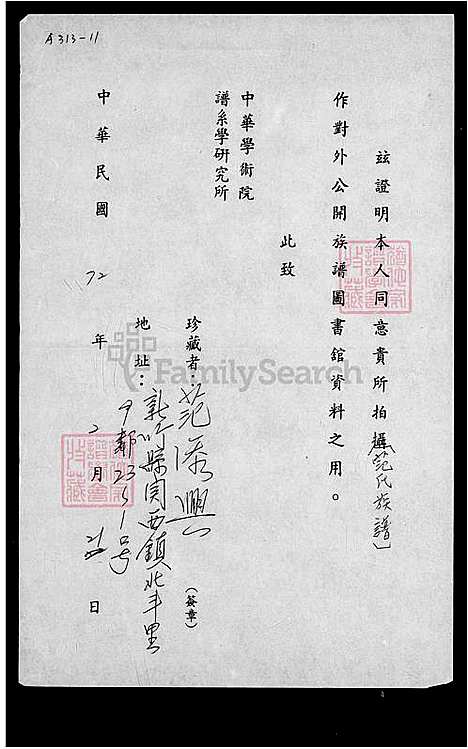 A313-11
茲證明本人同意貴所拍攝范氏族譜
作對外公開族譜圖書館資料之用。
此致
中華學術院
譜系學研究所
珍藏者：范添興（簽章）
地址：新竹縣関西鎮北斗里
9鄰23之1号
中華民國72年2月日
FamilySearch